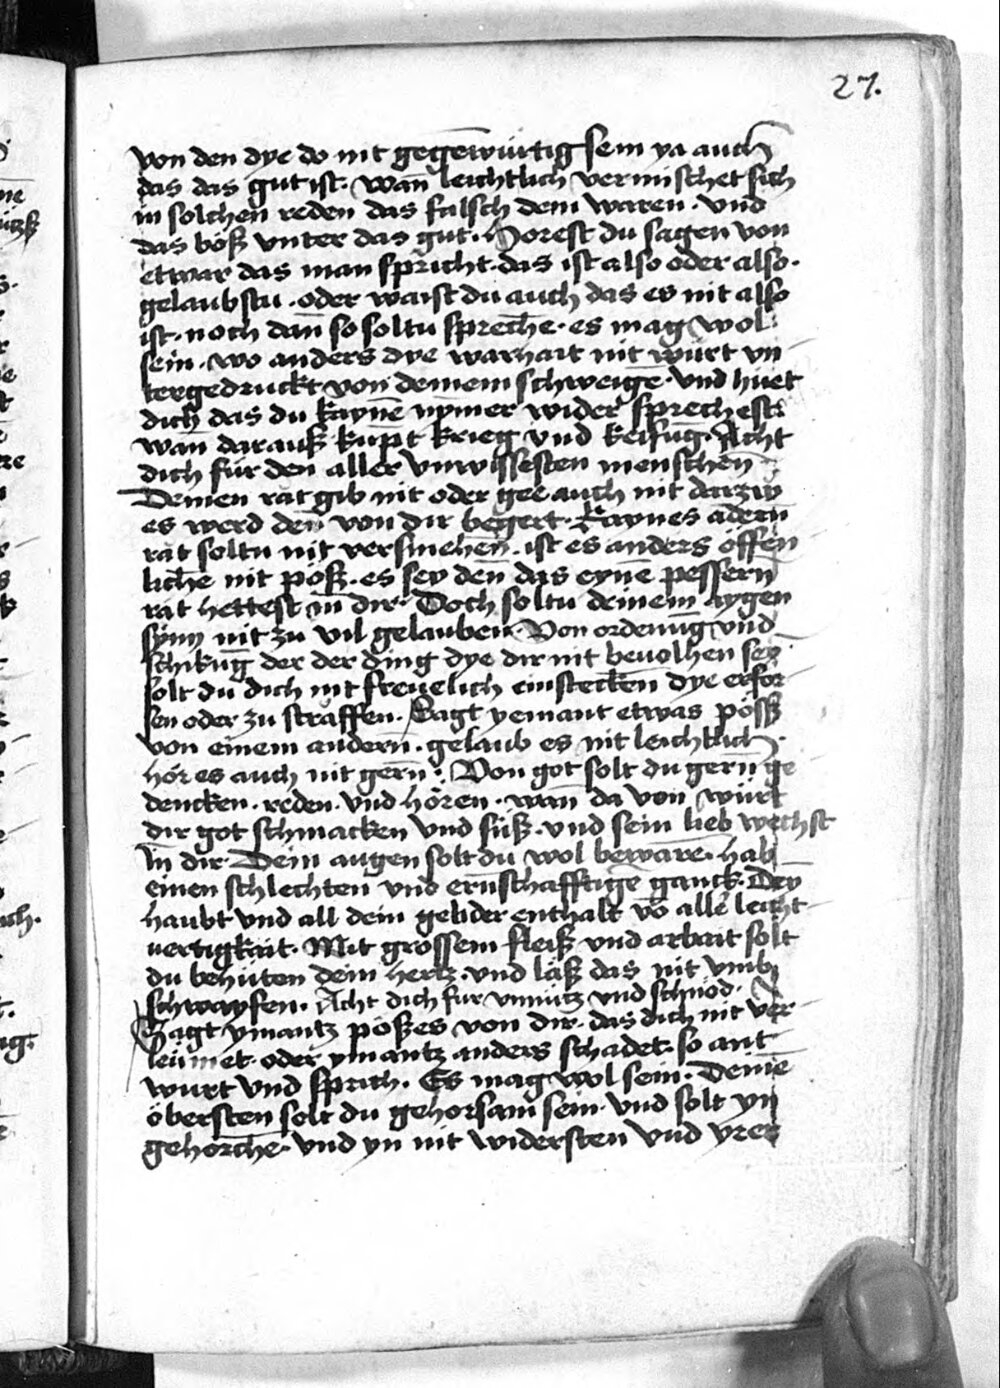 27.
von den dye do nit gegēwürtig sein ya auch
das das gut ist. wan̄ leichtlich vermischet sich
in solchen reden das falsch dem waren. vnd
das böß vnter das gut. Horest du sagen von
etwar das man spricht. das ist also oder also.
gelaubstu. oder waist du auch das es nit also
ist. noch dan̄ so soltu spreche̅. es mag wol
sein. wo anders dye warhait nit würt vn
tergedruckt von deinem schweigē. vnd hüet
dich das du kaynē nymer wider sprechest
wan̄ darauß kūpt krieg vnd keifūg. Acht
dich für den aller vnwissesten menschen
Deinen rat gib nit oder gee auch nit darzw
es werd den̄ von dir begert. Kaynes adern̄
rat soltu nit versmehen̄. ist es anders öffen
lichē nit pöß. es sey den̄ das eynē pessern̄
rat hettest in̄ dir. Doch soltu deinem aygen
synn nit zu vil gelauben. Von ordenūg vnd
schikūg der der ding dye dir nit beuolhen sey
solt du dich nit freuelich einstecken dye erfor
sen oder zu straffen. Sagt yemant etwas pöß
von einem andern̄. gelaub es nit leichtlich.
hör es auch nit gern̄. Von got solt du gern̄ ge
dencken. reden. vnd hören. wan̄ da von würt
dir got schmacken vnd süß. vnd sein lieb wechst
in̄ dir. Dein augen solt du wol bewarē. hab
einen schlechten vnd ern̄schafftigē ganck. Dey
haubt vnd all dein gelider enthalt vō aller leicht
uertigkait. Mit grossem fleiß vnd arbait solt
du behüten dein hertz. vnd laß das nit vmb
schwayfen. Acht dich fur vnnutz vnd schnöd.
Sagt ymantz pößes von dir. das dich nit ver
leümet. oder ymantz anders schadet. so ant
wurt vnd sprich. Es mag wol sein. Deinē
öbersten solt du gehorsam sein. vnd solt yn
gehorchē. vnd yn nit widersten vnd yrer